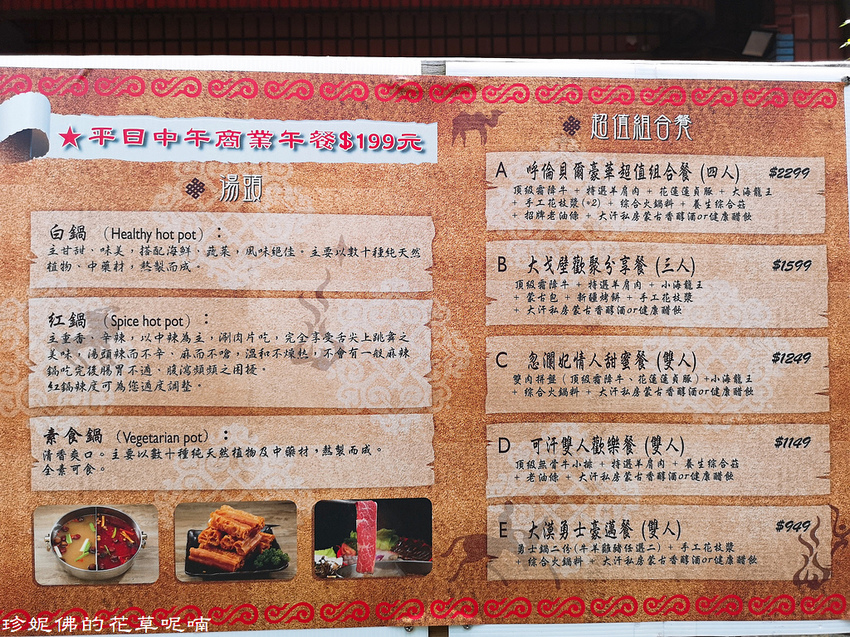 ★平日中午商業午餐$199元
湯頭
白鍋 （Healthy hot pot）：
主甘甜、味美，搭配海鮮、蔬菜，風味絕佳。主要以數十種純天然
植物、中藥材，熬製而成。
紅鍋 （Spice hot pot）：
主重香、辛辣，以中辣為主，涮肉片吃，完全享受舌尖上跳舞之
美味，湯頭辣而不辛、麻而不嗆，溫和不燥熱，不會有一般麻辣
鍋吃完後腸胃不適、腹瀉頻頻之困擾。
紅鍋辣度可為您適度調整。
素食鍋 （Vegetarian pot）：
清香爽口。主要以數十種純天然植物及中藥材，熬製而成。
全素可食。
超值組合餐
A 呼倫貝爾豪華超值組合餐 (四人) $2299
頂級霜降牛 + 特選羊肩肉 + 花蓮蓬貞豚 + 大海龍王
+ 手工花枝漿(*2) + 綜合火鍋料 + 養生綜合菇
+ 招牌老油條 + 大汗私房蒙古香醇酒or健康醋飲
B 大戈壁歡聚分享餐 (三人) $1599
頂級霜降牛 + 特選羊肩肉 + 小海龍王
+ 蒙古包 + 新疆烤餅 + 手工花枝漿
+ 大汗私房蒙古香醇酒or健康醋飲
C 忽瀾妃情人甜蜜餐 (雙人) $1249
雙肉拼盤（頂級霜降牛、花蓮蓬貞豚）+小海龍王
+ 綜合火鍋料 + 大汗私房蒙古香醇酒or健康醋飲
D 可汗雙人歡樂餐 (雙人) $1149
頂級無骨牛小排 + 特選羊肩肉 + 養生綜合菇
+ 老油條 + 大汗私房蒙古香醇酒or健康醋飲
E 大漠勇士豪邁餐 (雙人) $949
勇士鍋二份(牛羊雞豬任選二) + 手工花枝漿
+ 綜合火鍋料 + 大汗私房蒙古香醇酒or健康醋飲
珍妮佛的花草呢喃